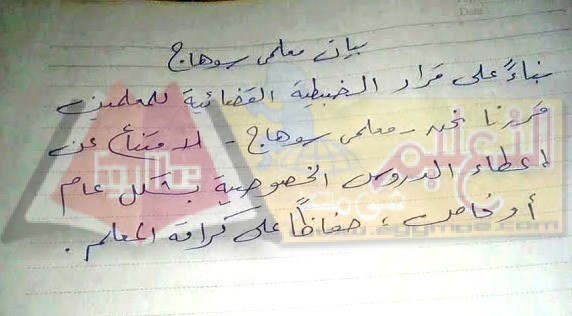 بيان معلمى سوهاج
بناءً على قرار الضبطية القضائية للمعلمين
قررنا نحن - معلمى سوهاج - الامتناع عن
إعطاء الدروس الخصوصية بشكل عام
أو خاص ، حفاظاً على كرامة المعلم .
التعليم
فى مصر
www.egymoe.com
egymoe